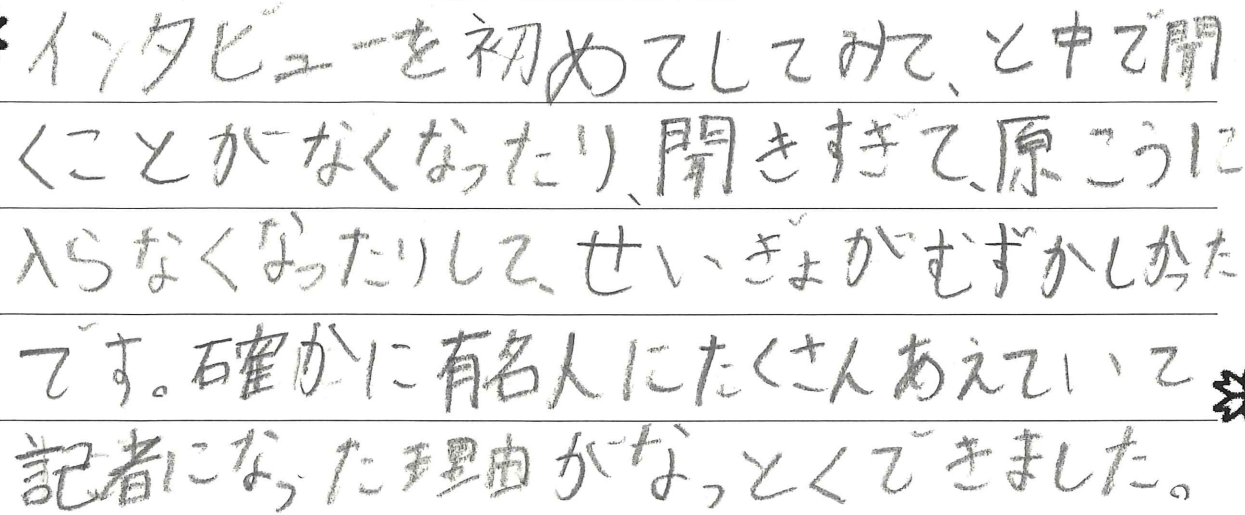 インタビューを初めてしてみて、と中で開
くことがなくなったり、開きすぎて、原こうに
入らなくなったりして、せいぎょがむずかしかった
です。確かに有名人にたくさんあえていいて
記者になった理由がなっとくできました。